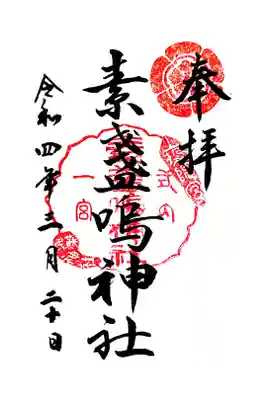 奉拝
素盞嗚神社
令和四年三月二十日
一宮